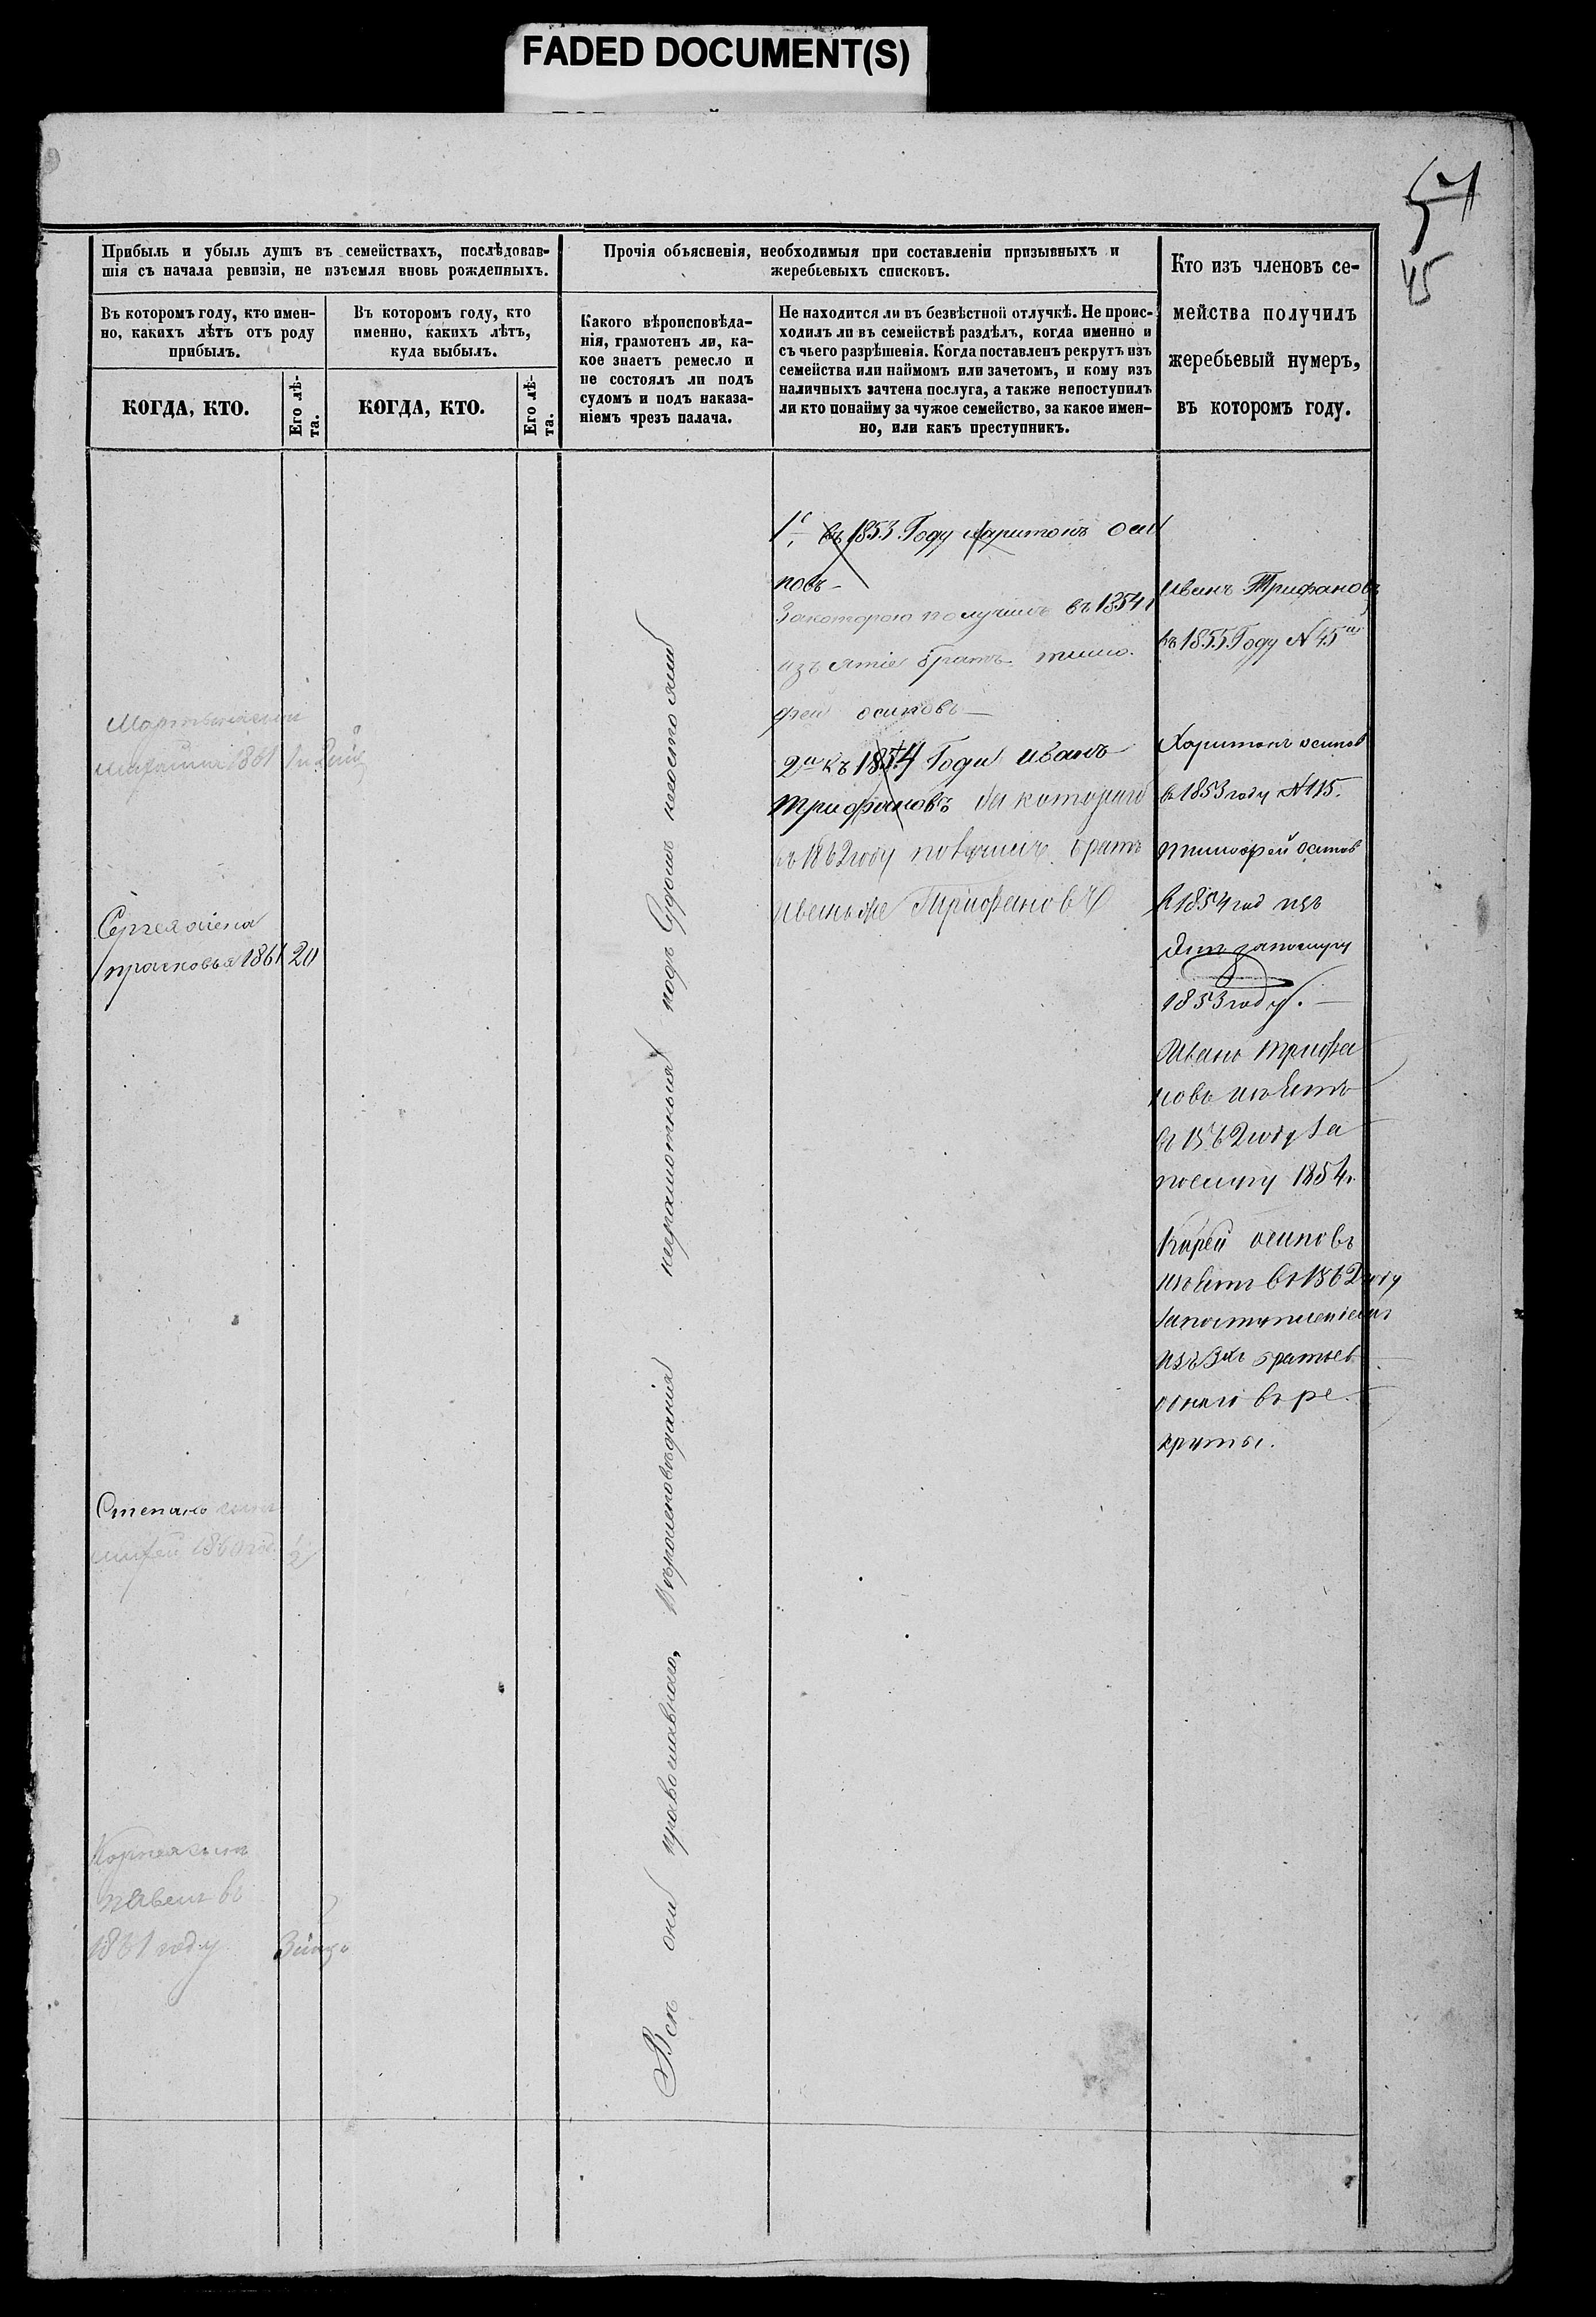 FADED DOCUMENT(S)
45
Прибыль и убыль душъ въ семействахъ, послѣдовав-
шія съ начала ревизіи, не изъемля вновь рожденныхъ.
Въ которомъ году, кто имен-
но, какихъ лѣтъ отъ роду
прибылъ.
КОГДА, КТО.
Его лѣ-
та.
Въ которомъ году, кто
именно, какихъ лѣтъ,
куда выбылъ.
КОГДА, КТО.
Его лѣ-
та.
Прочія объясненія, необходимыя при составленіи призывныхъ и
жеребьевыхъ списковъ.
Какого вѣроисповѣда-
нія, грамотенъ ли, ка-
кое знаетъ ремесло и
не состоялъ ли подъ
судомъ и подъ наказа-
ніемъ чрезъ палача.
Не находится ли въ безвѣстной отлучкѣ. Не проис-
ходилъ ли въ семействѣ раздѣлъ, когда именно и
съ чьего разрѣшенія. Когда поставленъ рекрутъ изъ
семейства или наймомъ или зачетомъ, и кому изъ
наличныхъ зачтена послуга, а также непоступилъ
ли кто понайму за чужое семейство, за какое имен-
но, или какъ преступникъ.
Кто изъ членовъ се-
мейства получилъ
жеребьевый нумеръ,
въ которомъ году.
1861
Сергея жена
прасковья 1861 20
Степана сынъ
1860
Корнея сынъ
павелъ въ
1861 году
Всѣ они православнаго, Вѣроисповѣданія неграмотныя подъ Судомъ несостояли
1. въ 1853 Году Харитонъ Оси
повъ
Закоторого получилъ въ 1854
изъятіе братъ тимо
фей осиповъ
2й къ 1854 Года иванъ
Трифановъ за котораго
въ 1862 году получилъ братъ
иванъ же Трифановъ
иванъ Трифановъ
въ 1855 Году N 45
Харитонъ осиповъ
в 1853 году N 115.
тимофей осиповъ
в 1854 год изъ
запослугу
1853 году.
Иванъ трифа
новъ изъятъ
въ 1862 году за
послугу 1854 г.
осиповъ
изъятъ въ 1862 году
запоступленіемъ
изъ 3хъ братьев
одного въ ре
круты.